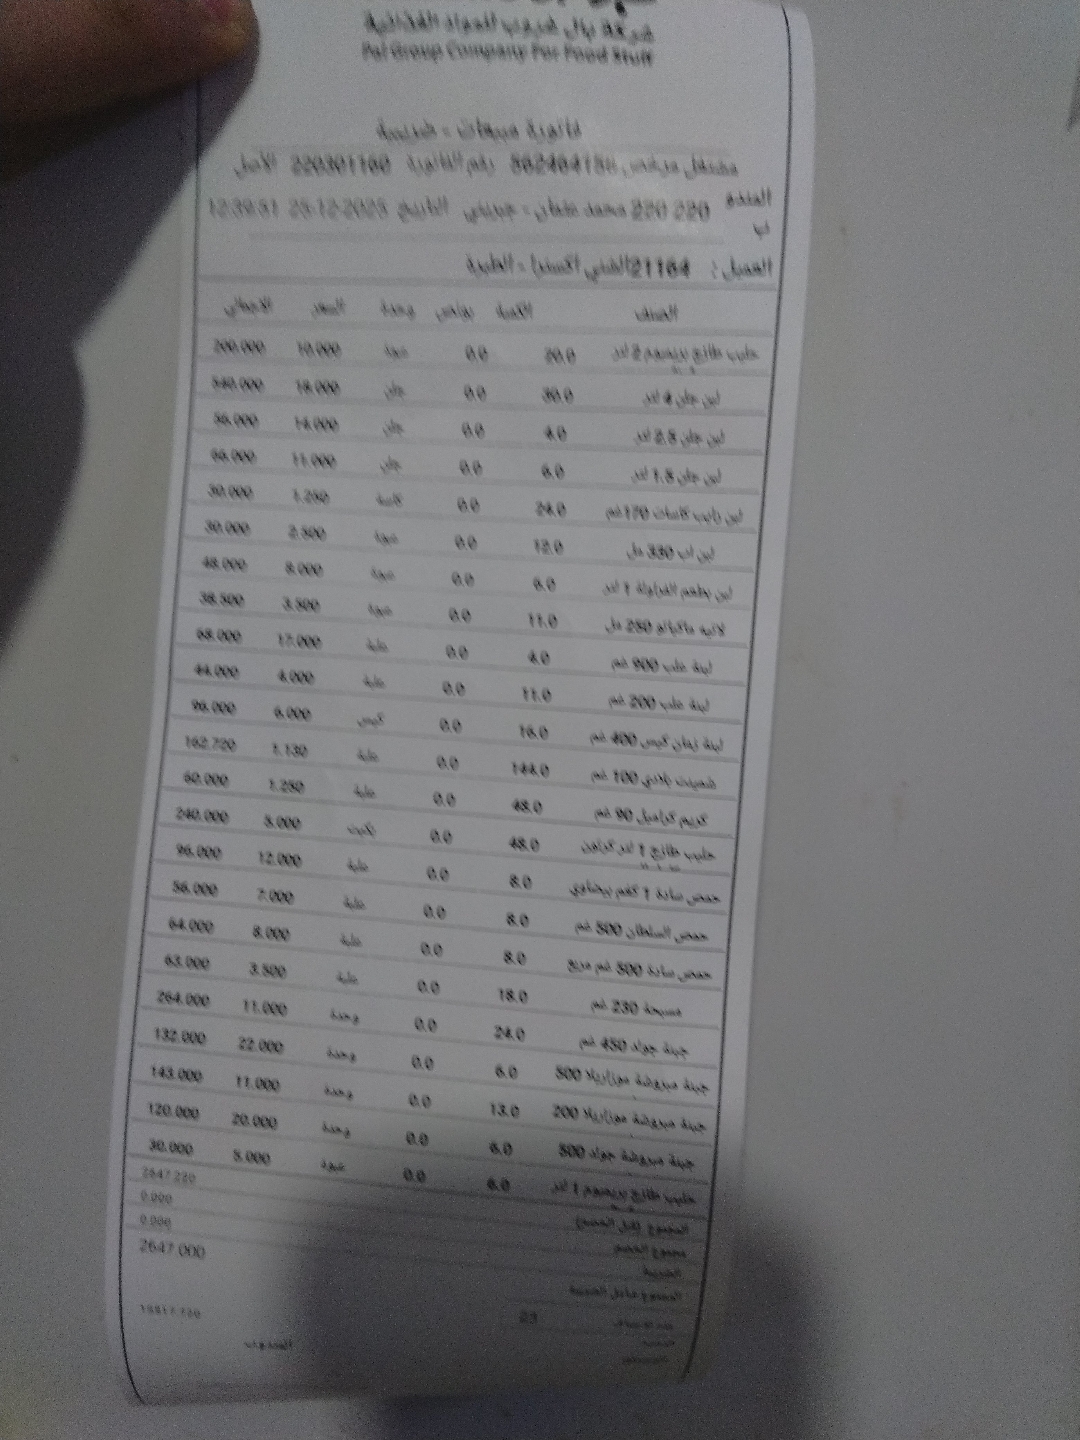 شركة بال جروب للمواد الغذائية
Pal Group Company For Food Stuff
فاتورة مبيعات - ضريبية
مشتغل مرخص رقم الفاتورة 220301160 الأصل
المندوب 220 220 محمد - جنيني التاريخ 25-12-2025 12:39:51
العميل : 21164 الشني اكسترا - الطيرة
الصنف الكمية بونص وحدة السعر الاجمالي
حليب طازج بريميوم 2 لتر 20.0 0.0 عبوة 10.000 200.000
لبن جلن 4 لتر 30.0 0.0 جلن 18.000 540.000
لبن جلن 2.5 لتر 4.0 0.0 جلن 14.000 56.000
لبن جلن 1.5 لتر 6.0 0.0 جلن 11.000 66.000
لبن رايب كاسات 170 غم 24.0 0.0 كاسة 1.250 30.000
لبن اب 330 مل 12.0 0.0 عبوة 2.500 30.000
لبن بطعم الفراولة 1 لتر 6.0 0.0 عبوة 8.000 48.000
لاتيه ماكياتو 250 مل 11.0 0.0 عبوة 3.500 38.500
لبنة علب 900 غم 4.0 0.0 علبة 17.000 68.000
لبنة علب 200 غم 11.0 0.0 علبة 4.000 44.000
لبنة زمان كيس 400 غم 16.0 0.0 كيس 6.000 96.000
شمينت بلادي 100 غم 144.0 0.0 علبة 1.130 162.720
كريم كراميل 90 غم 48.0 0.0 علبة 1.250 60.000
حليب طازج 1 لتر كرتون 48.0 0.0 بكيت 5.000 240.000
حمص سادة 1 كغم بيضاوي 8.0 0.0 علبة 12.000 96.000
حمص السلطان 500 غم 8.0 0.0 علبة 7.000 56.000
حمص سادة 500 غم مربع 8.0 0.0 علبة 8.000 64.000
مسبحة 230 غم 18.0 0.0 علبة 3.500 63.000
جبنة جولد 450 غم 24.0 0.0 وحدة 11.000 264.000
جبنة مبروشة موزاريلا 500 6.0 0.0 وحدة 22.000 132.000
جبنة مبروشة موزاريلا 200 13.0 0.0 وحدة 11.000 143.000
جبنة مبروشة جولد 500 6.0 0.0 وحدة 20.000 120.000
حليب طازج بريميوم 1 لتر 6.0 0.0 عبوة 5.000 30.000
المجموع (قبل الخصم) 2647.220
مجموع الخصم 0.000
الضريبة 0.000
المجموع شامل الضريبة 2647.000
23
المندوب